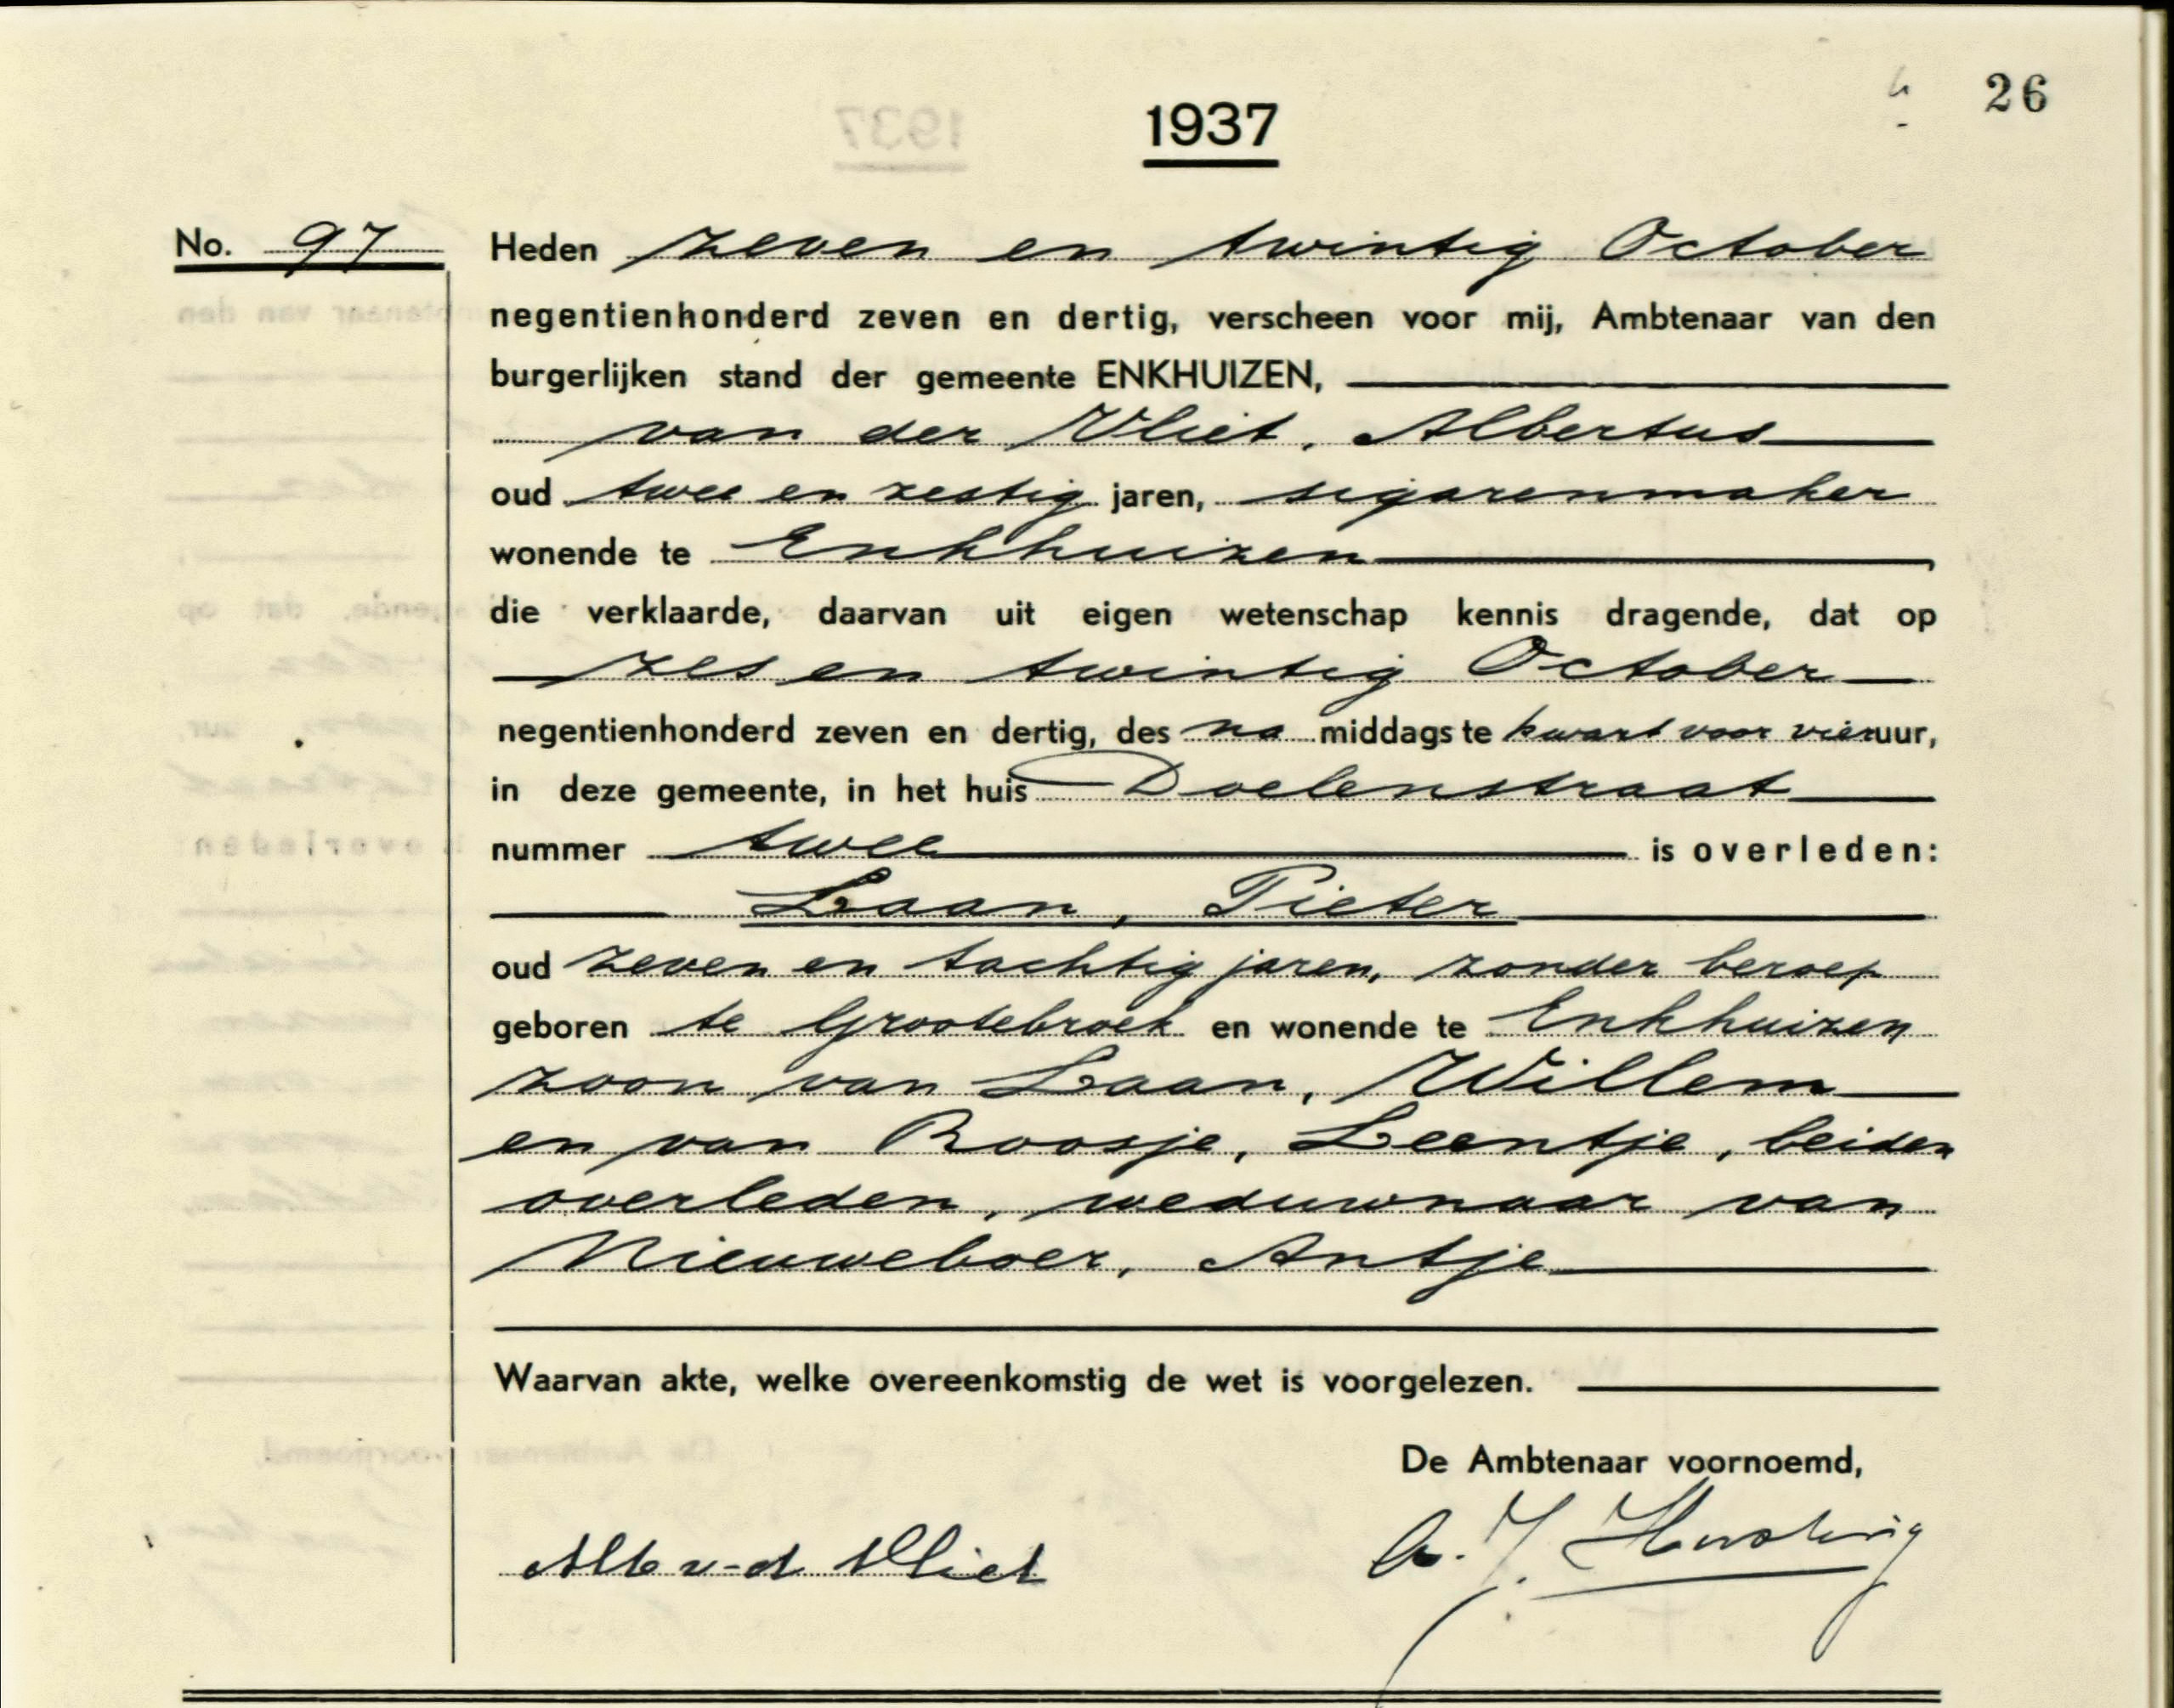 26
1937
No. 97
Heden zeven en twintig October
negentienhonderd zeven en dertig, verscheen voor mij, Ambtenaar van den
burgerlijken stand der gemeente ENKHUIZEN,
van der Vliet, Albertus
oud twee en zestig jaren, sigarenmaker
wonende te Enkhuizen,
die verklaarde, daarvan uit eigen wetenschap kennis dragende, dat op
zes en twintig October
negentienhonderd zeven en dertig, des na middags te kwart voor vier uur,
in deze gemeente, in het huis Doelenstraat
nummer twee is overleden:
Laan, Pieter
oud zeven en tachtig jaren, zonder beroep
geboren te Grootebroek en wonende te Enkhuizen
zoon van Laan, Willem
en van Roosje, Leentje, beiden
overleden, weduwnaar van
Nieuweboer, Antje
Waarvan akte, welke overeenkomstig de wet is voorgelezen.
De Ambtenaar voornoemd,
Alb v-d Vliet